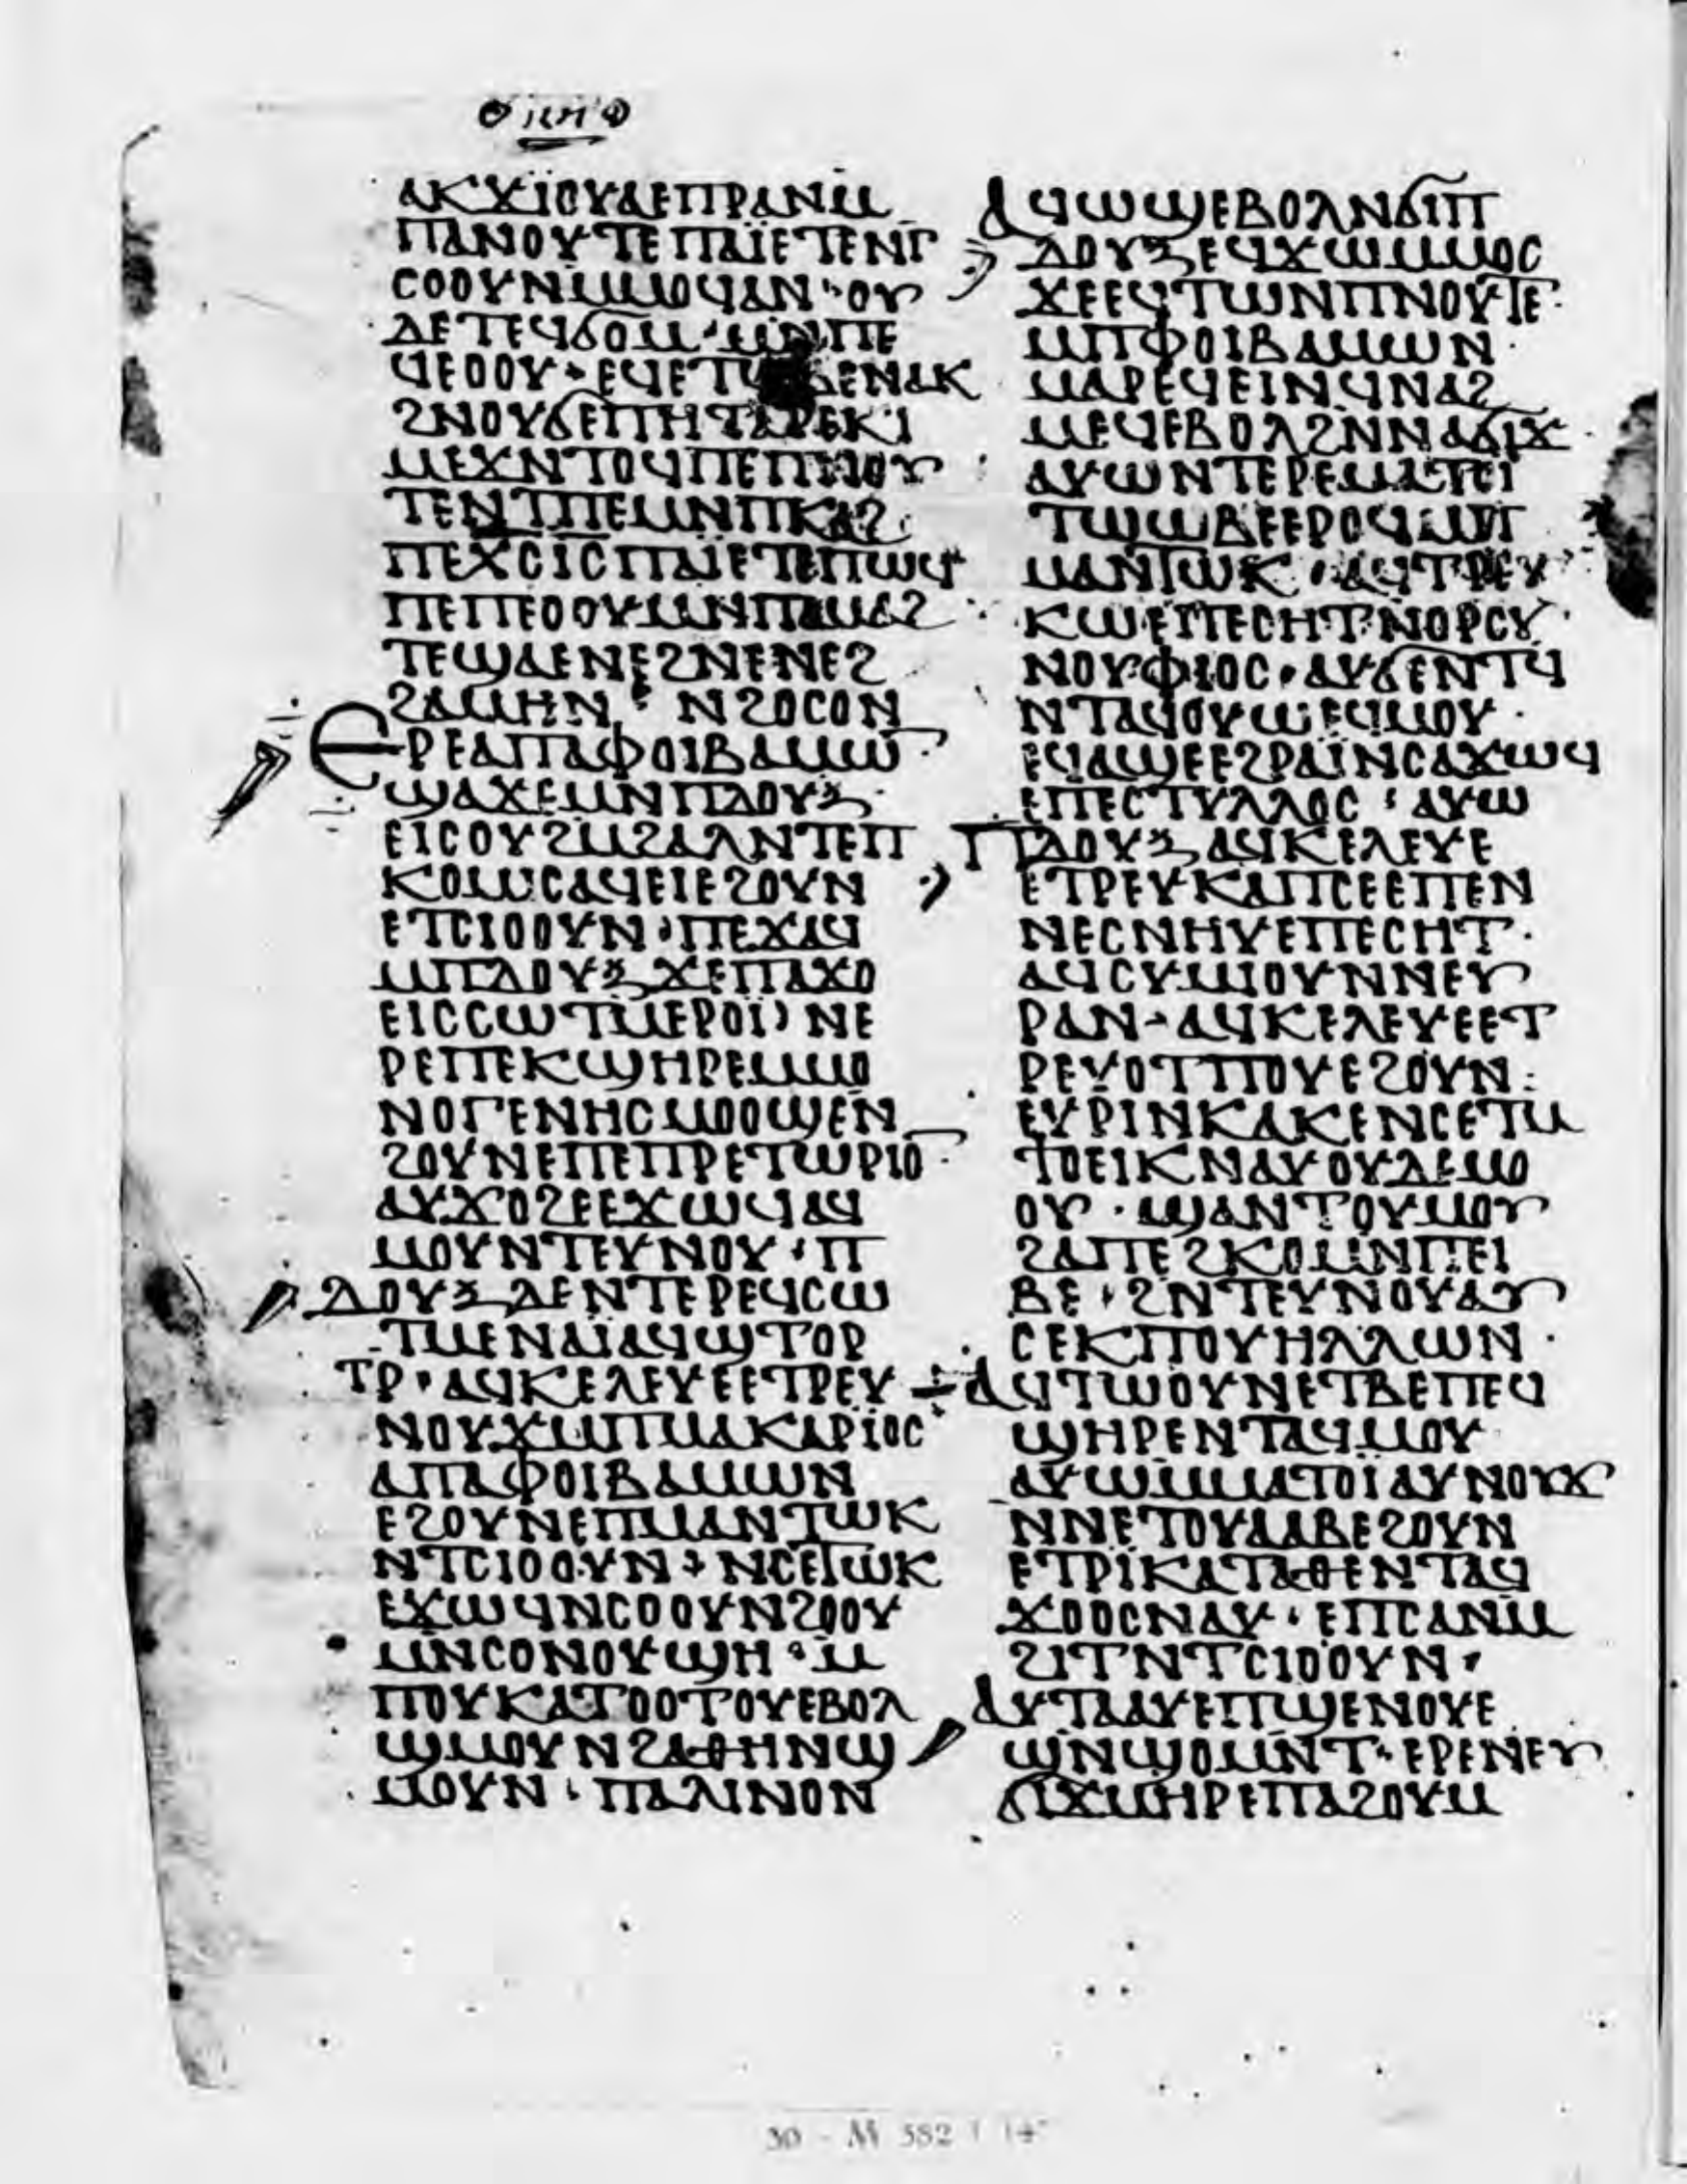 ⲁⲕϫⲓⲟⲩⲁⲉⲡⲣⲁⲛⲙ
ⲡⲁⲛⲟⲩⲧⲉⲡⲁⲓ̈ⲉⲧⲉⲛⲅ
ⲥⲟⲟⲩⲛⲙ̄ⲙⲟϥⲁⲛ·ⲟⲩ
ⲇⲉⲧⲉϥϭⲟⲙ·ⲙⲛ̄ⲡⲉ
ϥⲉⲟⲟⲩ·ⲉϥⲉⲧ ⲃⲉⲛⲁⲕ
ϩⲛⲟⲩϭⲉⲡⲏⲧⲁⲣⲉⲕⲓ
ⲙⲉϫⲛⲧⲟϥⲡⲉⲡⲛⲟⲩ
ⲧⲉⲛⲧⲡⲉⲙⲛⲡⲕⲁϩ:
ⲡⲉⲭⲥⲓ̄ⲥ̄ⲡⲁⲓ̈ⲉⲧⲉⲡⲱϥ
ⲡⲉⲡⲉⲟⲟⲩⲙⲛⲡⲁⲙⲁϩ
ⲧⲉϣⲁⲉⲛⲉϩⲛⲉⲛⲉϩ
ϩⲁⲙⲏⲛ· ⲛϩⲟⲥⲟⲛ
ⲉⲣⲉⲁⲡⲁⲫⲟⲓⲃⲁⲙⲱ̄
ϣⲁϫⲉⲙⲛⲡⲇⲟⲩⲝ·
ⲉⲓⲥⲟⲩϩⲙϩⲁⲗⲛⲧⲉⲡ
ⲕⲟⲙⲥⲁϥⲉⲓⲉϩⲟⲩⲛ
ⲉⲧⲥⲓⲟⲟⲩⲛ·ⲡⲉϫⲁϥ
ⲙⲡⲇⲟⲩⲝϫⲉⲡⲁϫⲟ
ⲉⲓⲥⲥⲱⲧⲙⲉⲣⲟⲓ̈·ⲛⲉ
ⲣⲉⲡⲉⲕϣⲏⲣⲉⲙⲙⲟ
ⲛⲟⲅⲉⲛⲏⲥⲙⲟⲟϣⲉⲛ
ϩⲟⲩⲛⲉⲡⲉⲡⲣⲉⲧⲱⲣⲓⲟ̄·
ⲁⲩϫⲟϩⲉⲉϫⲱϥⲁϥ
ⲙⲟⲩⲛⲧⲉⲩⲛⲟⲩ·ⲡ
ⲇⲟⲩⲝⲇⲉⲛⲧⲉⲣⲉϥⲥⲱ
ⲧⲙⲉⲛⲁⲓ̈ⲁϥϣⲧⲟⲣ
ⲧⲣ·ⲁϥⲕⲉⲗⲉⲩⲉⲉⲧⲣⲉⲩ
ⲛⲟⲩϫⲙⲡⲙⲁⲕⲁⲣⲓ̈ⲟⲥ
ⲁⲡⲁⲫⲟⲓⲃⲁⲙⲱⲛ
ⲉϩⲟⲩⲛⲉⲡⲙⲁⲛⲧⲱⲕ
ⲛⲧⲥⲓⲟⲟⲩⲛ·ⲛⲥⲉⲧⲱⲕ
ⲉϫⲱϥⲛⲥⲟⲟⲩⲛϩⲟⲟⲩ
ⲙⲛⲥⲟⲛⲟⲩϣⲏ·ⲙ
ⲡⲟⲩⲕⲁⲧⲟⲟⲧⲟⲩⲉⲃⲟⲗ
ϣⲙⲟⲩⲛϩⲁⲑⲏⲛϣ
ⲙⲟⲩⲛ·ⲡⲁⲗⲓⲛⲟⲛ
ⲁϥⲱϣⲉⲃⲟⲗⲛϭⲓⲡ
ⲇⲟⲩⲝⲉϥϫⲱⲙⲙⲟⲥ
ϫⲉⲉϥⲧⲱⲛⲡⲛⲟⲩⲧⲉ·
ⲙⲡⲫⲟⲓⲃⲁⲙⲱⲛ·
ⲙⲁⲣⲉϥⲉⲓⲛϥⲛⲁϩ
ⲙⲉϥⲉⲃⲟⲗϩⲛⲛⲁϭⲓϫ·
ⲁⲩⲱⲛⲧⲉⲣⲉⲙⲁⲧⲉⲓ
ⲧⲱⲱⲃⲉⲉⲣⲟϥⲙⲡ
ⲙⲁⲛⲧⲱⲕ·ⲁϥⲧⲣⲉⲩ
ⲕⲱⲉⲡⲉⲥⲏⲧⲛⲟⲣⲥⲩ·
ⲛⲟⲩⲫⲓⲟⲥ·ⲁⲩϭⲉⲛⲧϥ
ⲛⲧⲁϥⲟⲩⲱⲉϥⲙⲟⲩ·
ⲉϥⲁϣⲉⲉϩⲣⲁⲓ̈ⲛⲥⲁϫⲱϥ
ⲉⲡⲉⲥⲧⲩⲗⲗⲟⲥ·ⲁⲩⲱ
ⲡⲇⲟⲩⲝⲁϥⲕⲉⲗⲉⲩⲉ
ⲉⲧⲣⲉⲩⲕⲁⲡⲥⲉⲉⲡⲉⲛ
ⲛⲉⲥⲛⲏⲩⲉⲡⲉⲥⲏⲧ·
ⲁϥⲥⲩⲙⲓⲟⲩⲛⲛⲉⲩ
ⲣⲁⲛ·ⲁϥⲕⲉⲗⲉⲩⲉⲉⲧ
ⲣⲉⲩⲟⲧⲡⲟⲩⲉϩⲟⲩⲛ:
ⲉⲩⲣⲓⲛⲕⲁⲕⲉⲛⲥⲉⲧⲙ
ϯⲟⲉⲓⲕⲛⲁⲩⲟⲩⲇⲉⲙⲟ
ⲟⲩ·ϣⲁⲛⲧⲟⲩⲙⲟⲩ
ϩⲁⲡⲉϩⲕⲟⲙⲛⲡⲉⲓ
ⲃⲉ·ϩⲛⲧⲉⲩⲛⲟⲩⲁⲩ
ⲥⲉⲕⲡⲟⲩⲏⲗⲗⲱⲛ·
ⲁϥⲧⲱⲟⲩⲛⲉⲧⲃⲉⲡⲉϥ
ϣⲏⲣⲉⲛⲧⲁϥⲙⲟⲩ
ⲁⲩⲱⲙⲙⲁⲧⲟⲓ̈ⲁⲩⲛⲟⲩϫ
ⲛⲛⲉⲧⲟⲩⲁⲁⲃⲉϩⲟⲩⲛ
ⲉⲧⲣⲓ̈ⲕⲁⲧⲁⲑⲉⲛⲧⲁϥ
ϫⲟⲟⲥⲛⲁⲩ·ⲉⲡⲥⲁⲛⲙ
ϩⲓⲧⲛⲧⲥⲓⲟⲟⲩⲛ·
ⲁⲩⲧⲁⲁⲩⲉⲡϣⲉⲛⲟⲩⲉ
ϣⲛϣⲟⲙⲛⲧ·ⲉⲣⲉⲛⲉⲩ
ϭⲓϫⲙⲏⲣⲉⲡⲁϩⲟⲩⲙ
30 - M 582 f 14ᵛ